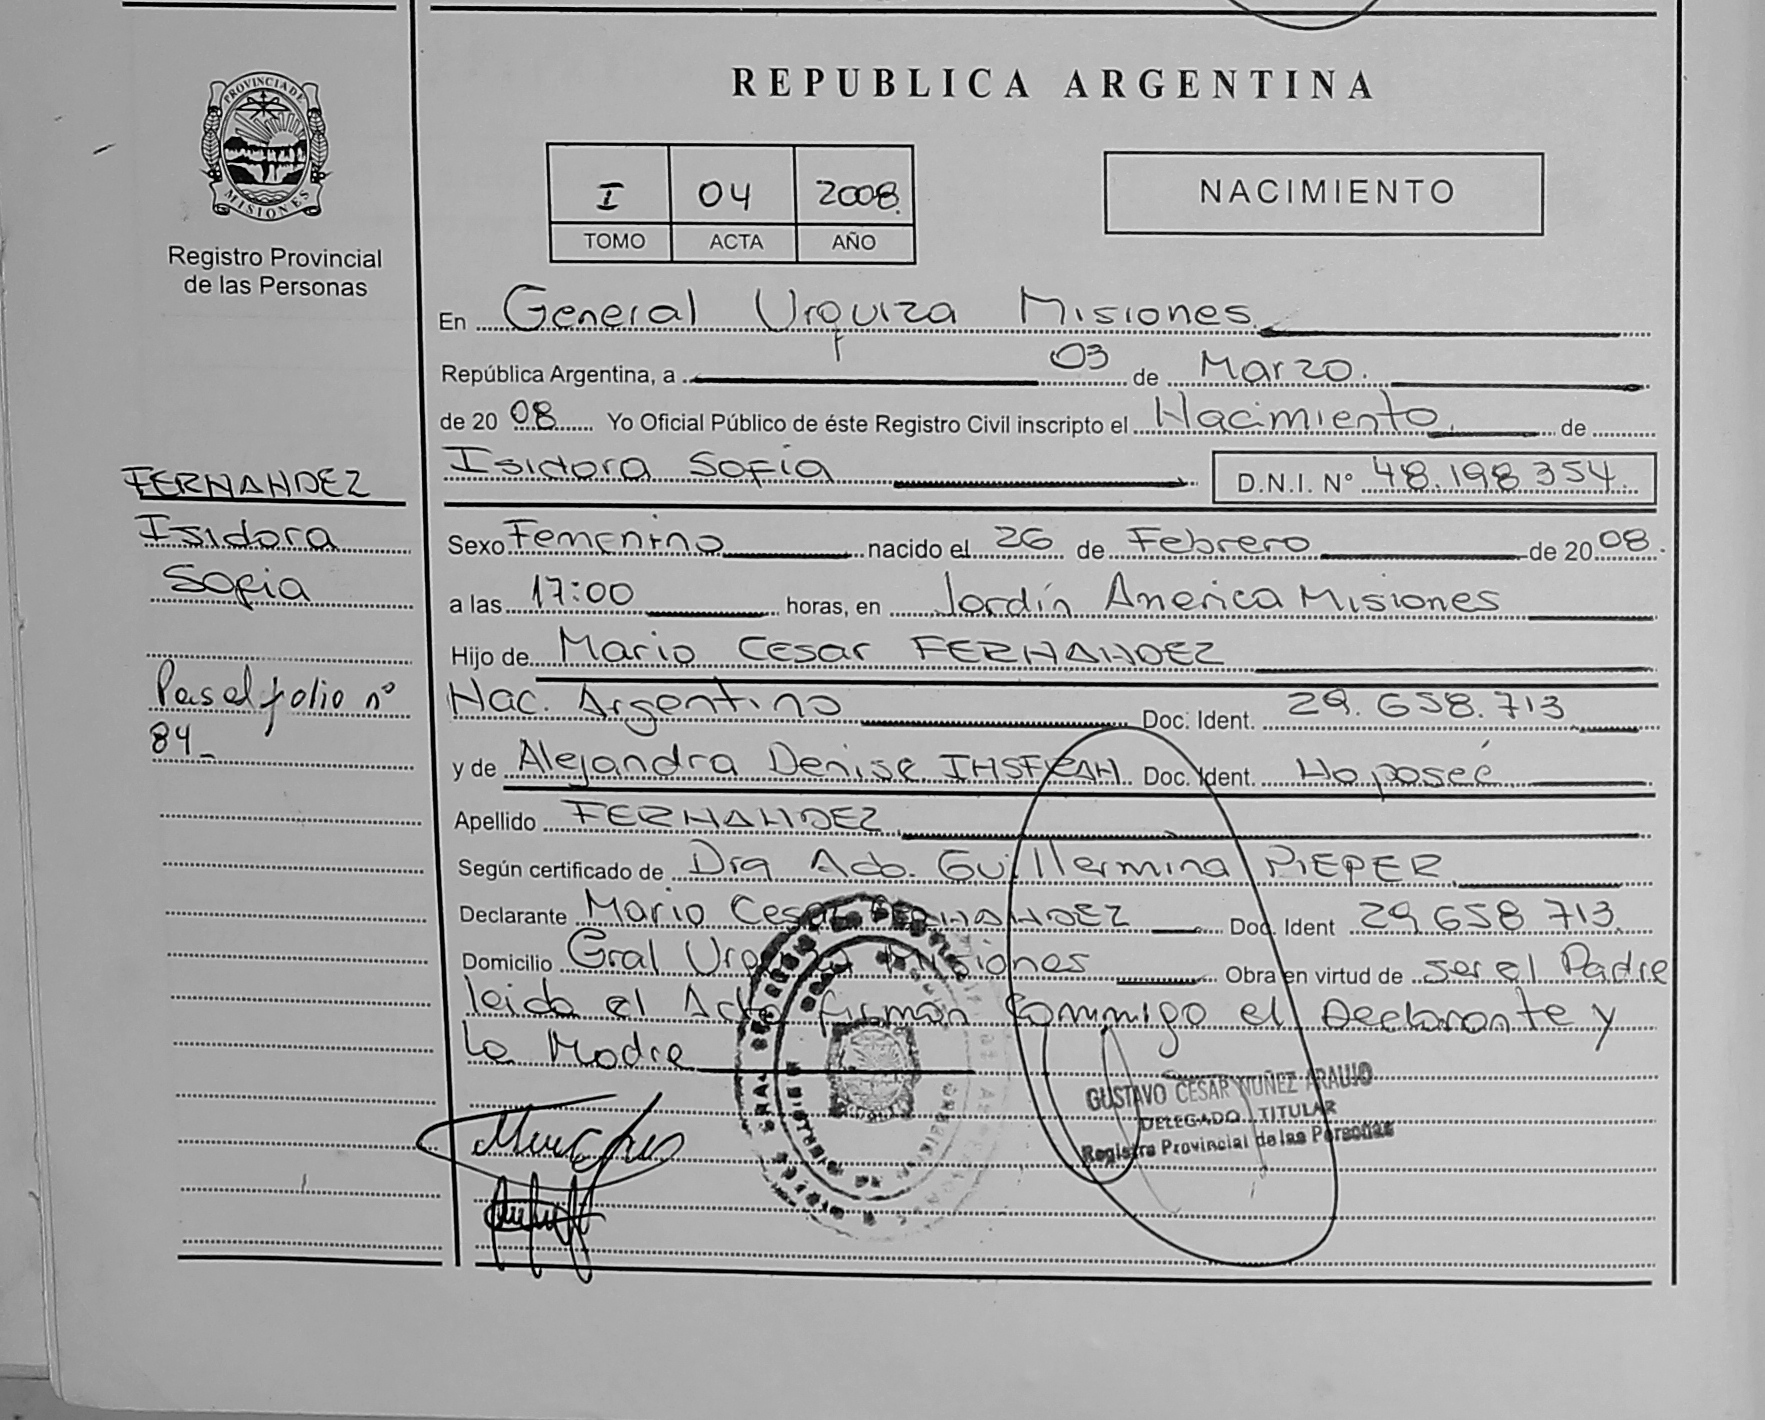 REPUBLICA ARGENTINA
PROVINCIA DE
MISIONES
Registro Provincial
de las Personas
I 04 2008
TOMO ACTA AÑO
NACIMIENTO
En General Urquiza Misiones
República Argentina, a 03 de Marzo.
de 20 08 Yo Oficial Público de éste Registro Civil inscripto el Nacimiento de
Isidora Sofia D.N.I. N° 48.198.354
Sexo Femenino nacido el 26 de Febrero de 20 08.
a las 17:00 horas, en Jardín America Misiones
Hijo de Mario Cesar FERNANDEZ
Nac. Argentino Doc. Ident. 29.658.713
y de Alejandra Denise Doc. Ident. No poseé
Apellido FERNANDEZ
Según certificado de Dra Ado. Guillermina PIEPER
Declarante Mario Cesar FERNANDEZ Doc. Ident 29 658 713
Domicilio Gral Urquiza Misiones Obra en virtud de ser el Padre
leida el Acta firman Conmigo el Declarante y
la Madre
FERNANDEZ
Isidora
Sofia
Pasa el folio n°
84
GUSTAVO CESAR NUÑEZ ARAUJO
DELEGADO TITULAR
Registro Provincial de las Personas